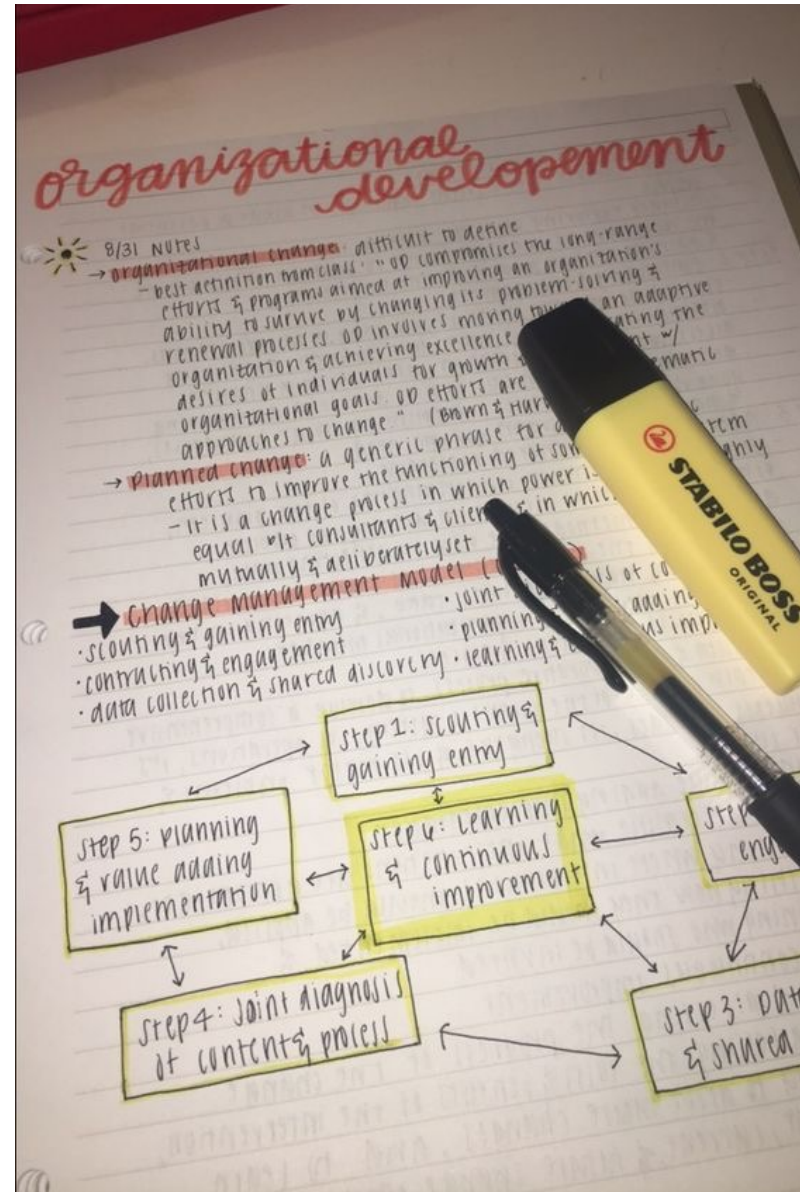 organizational
developement
8/31 NOTES
→ organizational change: difficult to define
- best definition from class: "OD compromises the long-range
efforts & programs aimed at improving an organization's
ability to survive by changing its problem-solving &
renewal processes. OD involves moving an adaptive
organization & achieving excellence the
desires of individuals for growth w/
organizational goals. OD efforts are
approaches to change." (Brown &
→ Planned change: a generic phrase for
efforts to improve the functioning of
- It is a change process in which power
equal consultants & in
mutually & deliberately set
→ Change Management Model
• scouting & gaining entry
• contracting & engagement
• data collection & shared discovery
• joint of
• planning adding
• learning &
Step 1: scouting &
gaining entry
Step 5: planning
& value adding
implementation
Step 6: Learning
& continuous
improvement
Step 4: Joint diagnosis
of content & process
Step 3:
& shared
STABILO BOSS
ORIGINAL